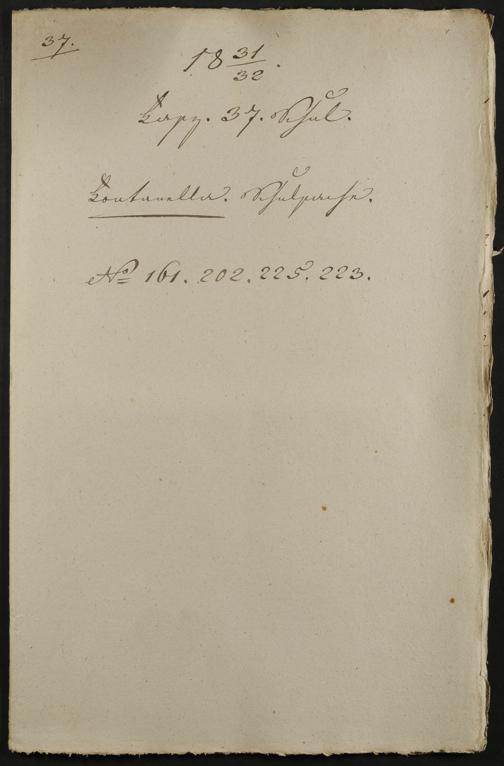 37.
18 31/32.
Kapz. 37. Schul.
Kontanella. Schulsache.
No 161. 202. 225. 223.